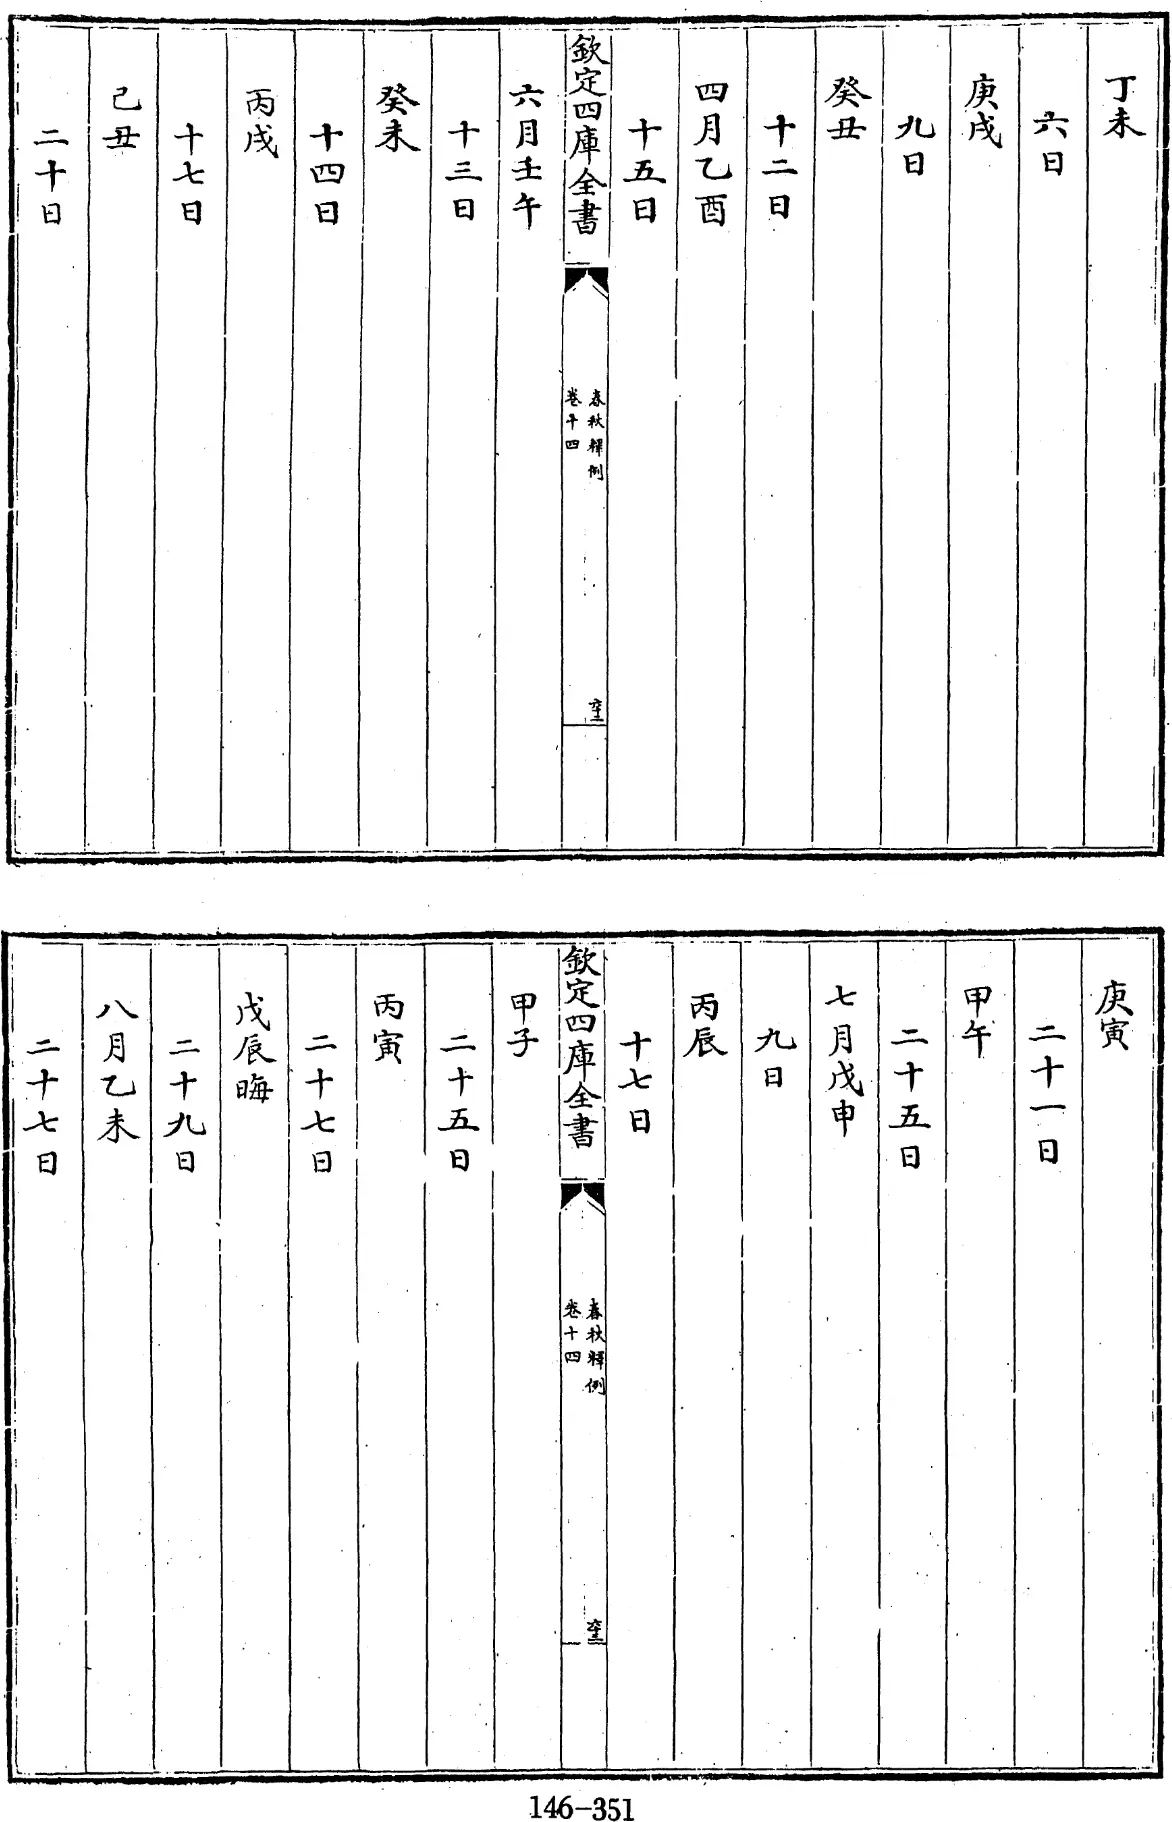 丁未
六日
庚戌
九日
癸丑
十二日
四月乙酉
十五日
欽定四庫全書
春秋釋例
卷十四
六月壬午
十三日
癸未
十四日
丙戌
十七日
己丑
二十日
庚寅
二十一日
甲午
二十五日
七月戊申
九日
丙辰
十七日
欽定四庫全書
春秋釋例
卷十四
甲子
二十五日
丙寅
二十七日
戊辰晦
二十九日
八月乙未
二十七日
146-351